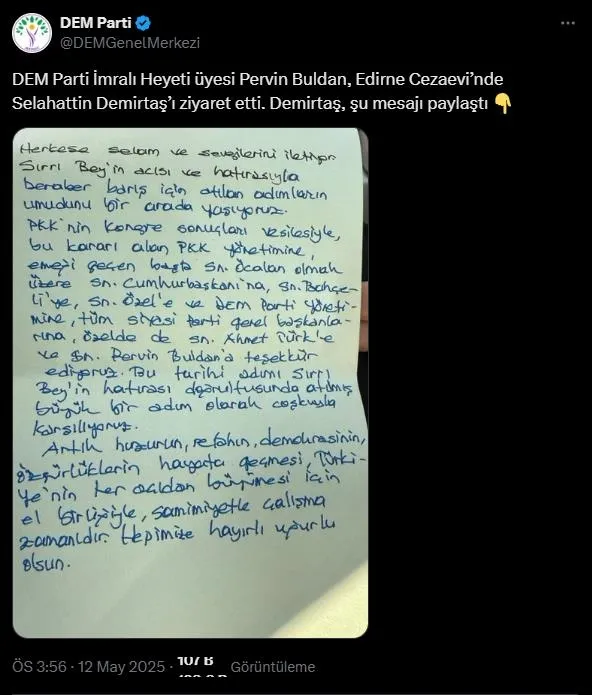 DEM Parti
@DEMGenelMerkezi
DEM Parti İmralı Heyeti üyesi Pervin Buldan, Edirne Cezaevi’nde
Selahattin Demirtaş’ı ziyaret etti. Demirtaş, şu mesajı paylaştı 👇
Herkese selam ve sevgilerini iletiyor
Sırrı Bey'in acısı ve hatırasıyla
beraber barış için atılan adımların
umudunu bir arada yaşıyoruz.
PKK'nin kongre sonuçları vesilesiyle,
bu kararı alan PKK yönetimine,
emeği geçen başta sn. Öcalan olmak
üzere sn. Cumhurbaşkanı'na, sn. Bahçe-
li'ye, sn. Özel'e ve DEM Parti yöneti-
mine, tüm siyasi parti genel başkanla-
rına, özelde de sn. Ahmet Türk'e
ve sn. Pervin Buldan'a teşekkür
ediyoruz. Bu tarihi adımı Sırrı
Bey'in hatırası doğrultusunda atılmış
büyük bir adım olarak coşkuyla
karşılıyoruz.
Artık huzurun, refahın, demokrasinin,
özgürlüklerin hayata geçmesi, Türki-
ye'nin her açıdan büyümesi için
el birliğiyle, samimiyetle çalışma
zamanıdır. Hepimize hayırlı uğurlu
olsun.
ÖS 3:56 · 12 May 2025 · 107 B Görüntüleme